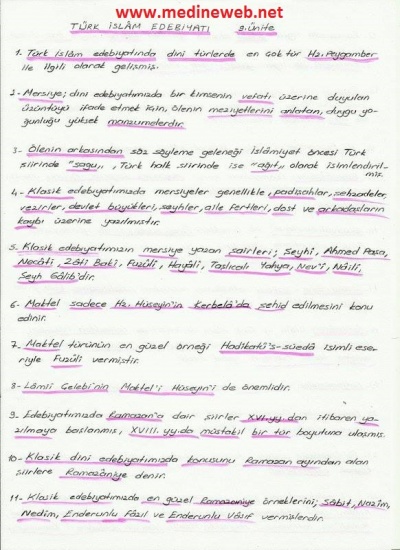 www.medineweb.net
TÜRK İSLÂM EDEBİYATI 3.ünite
1. Türk islâm edebiyatında dini türlerde en çok tür Hz. Peygamber
ile ilgili olarak gelişmiş.
2- Mersiye; dini edebiyatımızda bir kimsenin vefatı üzerine duyulan
üzüntüyü ifade etmek için, ölenin meziyetlerini anlatan, duygu yo-
ğunluğu yüksek manzumelerdir.
3- Ölenin arkasından söz söyleme geleneği İslâmiyet öncesi Türk
şiirinde "sagu", Türk halk şiirinde ise "ağıt" olarak isimlendiril-
miş.
4- Klasik edebiyatımızda mersiyeler genellikle, padişahlar, şehzadeler,
vezirler, devlet büyükleri, şeyhler, aile fertleri, dost ve arkadaşların
kaybı üzerine yazılmıştır.
5. Klasik edebiyatımızın mersiye yazan şairleri; Şeyhî, Ahmed Paşa,
Necâti, Zâti Bakî, Fuzûlî, Hayâli, Taşlıcalı Yahya, Nev'î, Nâilî,
Şeyh Gâlib'dir.
6- Maktel sadece Hz. Hüseyin'in Kerbelâ'da şehid edilmesini konu
edinir.
7- Maktel türünün en güzel örneği Hadikatü's-süedâ isimli ese-
riyle Fuzûlî vermiştir.
8- Lâmii Çelebi'nin Maktel'i Hüseyin'i de önemlidir.
9- Edebiyatımızda Ramazan'a dair şiirler XVI.yy.dan itibaren ya-
zılmaya başlanmış, XVIII.yy.da müstakil bir tür boyutuna ulaşmış.
10- Klasik dini edebiyatımızda konusunu Ramazan ayından alan
şiirlere Ramazâniye denir.
11- Klasik edebiyatımızda en güzel Ramazaniye örneklerini; Sâbit, Nazîm,
Nedîm, Enderunlu Fâzıl ve Enderunlu Vâsıf vermişlerdir.